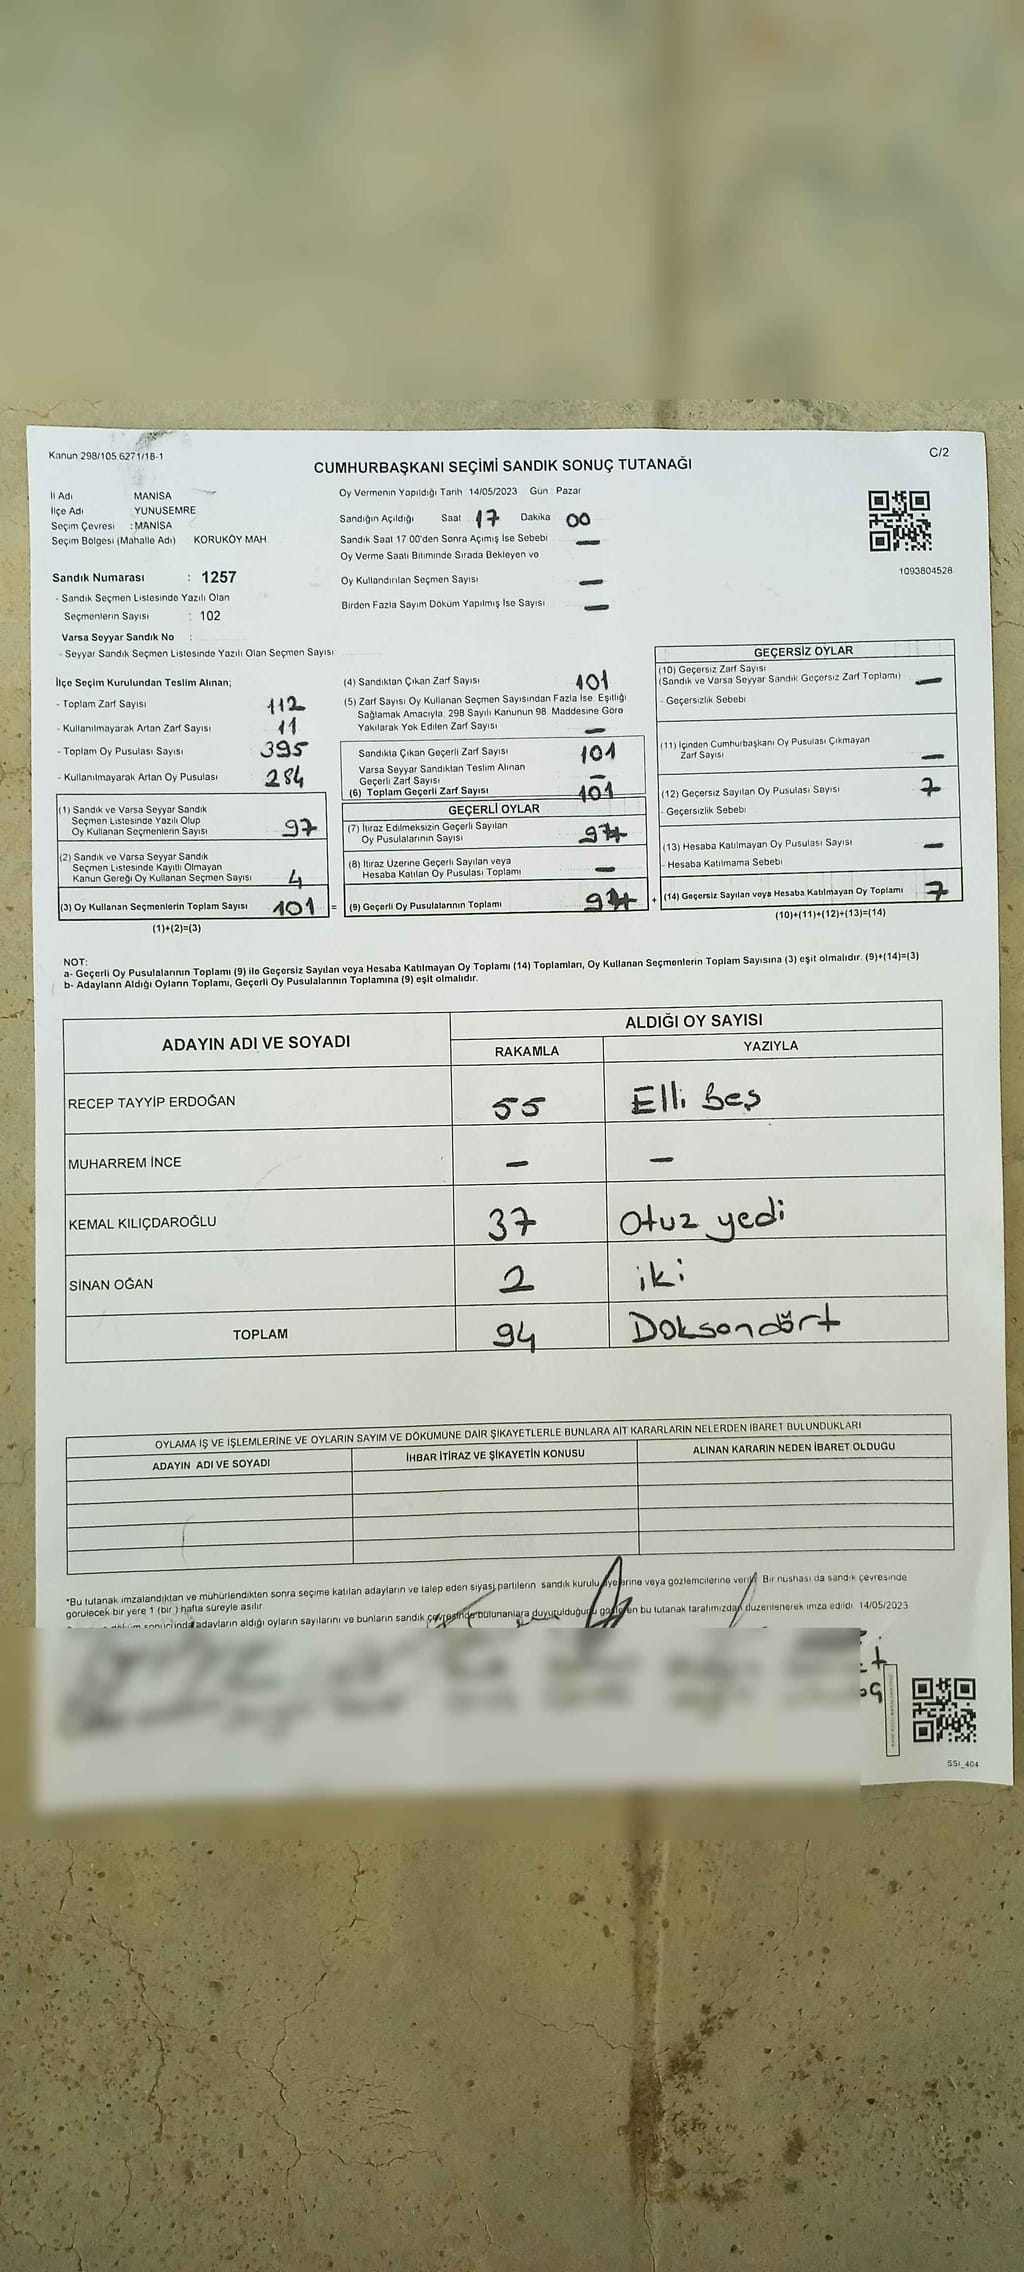 Kanun 298/105 6271/18-1
C/2
CUMHURBAŞKANI SEÇİMİ SANDIK SONUÇ TUTANAĞI
İl Adı : MANİSA
İlçe Adı : YUNUSEMRE
Seçim Çevresi : MANİSA
Seçim Bölgesi (Mahalle Adı) KORUKÖY MAH
Sandık Numarası : 1257
- Sandık Seçmen Listesinde Yazılı Olan
Seçmenlerin Sayısı : 102
Varsa Seyyar Sandık No :
- Seyyar Sandık Seçmen Listesinde Yazılı Olan Seçmen Sayısı
Oy Vermenin Yapıldığı Tarih 14/05/2023 Gün : Pazar
Sandığın Açıldığı Saat 17 Dakika 00
Sandık Saat 17 00'den Sonra Açımış İse Sebebi —
Oy Verme Saati Bitiminde Sırada Bekleyen ve
Oy Kullandırılan Seçmen Sayısı —
Birden Fazla Sayım Döküm Yapılmış İse Sayısı —
1093804528
İlçe Seçim Kurulundan Teslim Alınan;
- Toplam Zarf Sayısı 112
- Kullanılmayarak Artan Zarf Sayısı 11
- Toplam Oy Pusulası Sayısı 395
- Kullanılmayarak Artan Oy Pusulası 284
(1) Sandık ve Varsa Seyyar Sandık
Seçmen Listesinde Yazılı Olup
Oy Kullanan Seçmenlerin Sayısı 97
(2) Sandık ve Varsa Seyyar Sandık
Seçmen Listesinde Kayıtlı Olmayan
Kanun Gereği Oy Kullanan Seçmen Sayısı 4
(3) Oy Kullanan Seçmenlerin Toplam Sayısı 101 =
(1)+(2)=(3)
(4) Sandıktan Çıkan Zarf Sayısı 101
(5) Zarf Sayısı Oy Kullanan Seçmen Sayısından Fazla İse, Eşitliği
Sağlamak Amacıyla, 298 Sayılı Kanunun 98. Maddesine Göre
Yakılarak Yok Edilen Zarf Sayısı —
Sandıkta Çıkan Geçerli Zarf Sayısı 101
Varsa Seyyar Sandıktan Teslim Alınan
Geçerli Zarf Sayısı —
(6) Toplam Geçerli Zarf Sayısı 101
GEÇERLİ OYLAR
(7) İtiraz Edilmeksizin Geçerli Sayılan
Oy Pusulalarının Sayısı
(8) İtiraz Üzerine Geçerli Sayılan veya
Hesaba Katılan Oy Pusulası Toplamı —
(9) Geçerli Oy Pusulalarının Toplamı +
GEÇERSİZ OYLAR
(10) Geçersiz Zarf Sayısı
(Sandık ve Varsa Seyyar Sandık Geçersiz Zarf Toplamı) —
- Geçersizlik Sebebi
(11) İçinden Cumhurbaşkanı Oy Pusulası Çıkmayan
Zarf Sayısı —
(12) Geçersiz Sayılan Oy Pusulası Sayısı 7
- Geçersizlik Sebebi
(13) Hesaba Katılmayan Oy Pusulası Sayısı —
- Hesaba Katılmama Sebebi
(14) Geçersiz Sayılan veya Hesaba Katılmayan Oy Toplamı 7
(10)+(11)+(12)+(13)=(14)
NOT:
a- Geçerli Oy Pusulalarının Toplamı (9) ile Geçersiz Sayılan veya Hesaba Katılmayan Oy Toplamı (14) Toplamları, Oy Kullanan Seçmenlerin Toplam Sayısına (3) eşit olmalıdır. (9)+(14)=(3)
b- Adayların Aldığı Oyların Toplamı, Geçerli Oy Pusulalarının Toplamına (9) eşit olmalıdır.
ADAYIN ADI VE SOYADI
ALDIĞI OY SAYISI
RAKAMLA YAZIYLA
RECEP TAYYİP ERDOĞAN 55 Elli Beş
MUHARREM İNCE — —
KEMAL KILIÇDAROĞLU 37 Otuz yedi
SİNAN OĞAN 2 iki
TOPLAM 94 Doksandört
OYLAMA İŞ VE İŞLEMLERİNE VE OYLARIN SAYIM VE DÖKÜMÜNE DAİR ŞİKAYETLERLE BUNLARA AİT KARARLARIN NELERDEN İBARET BULUNDUKLARI
ADAYIN ADI VE SOYADI İHBAR İTİRAZ VE ŞİKAYETİN KONUSU ALINAN KARARIN NEDEN İBARET OLDUĞU
*Bu tutanak imzalandıktan ve mühürlendikten sonra seçime katılan adayların ve talep eden siyasi partilerin sandık kurulu üyelerine veya gözlemcilerine verilir. Bir nüshası da sandık çevresinde
görülecek bir yere 1 (bir ) hafta süreyle asılır.
sonucunda adayların aldığı oyların sayılarını ve bunların sandık çevresinde bulunanlara duyurulduğunu gösteren bu tutanak tarafımızdan düzenlenerek imza edildi 14/05/2023
SSİ_404